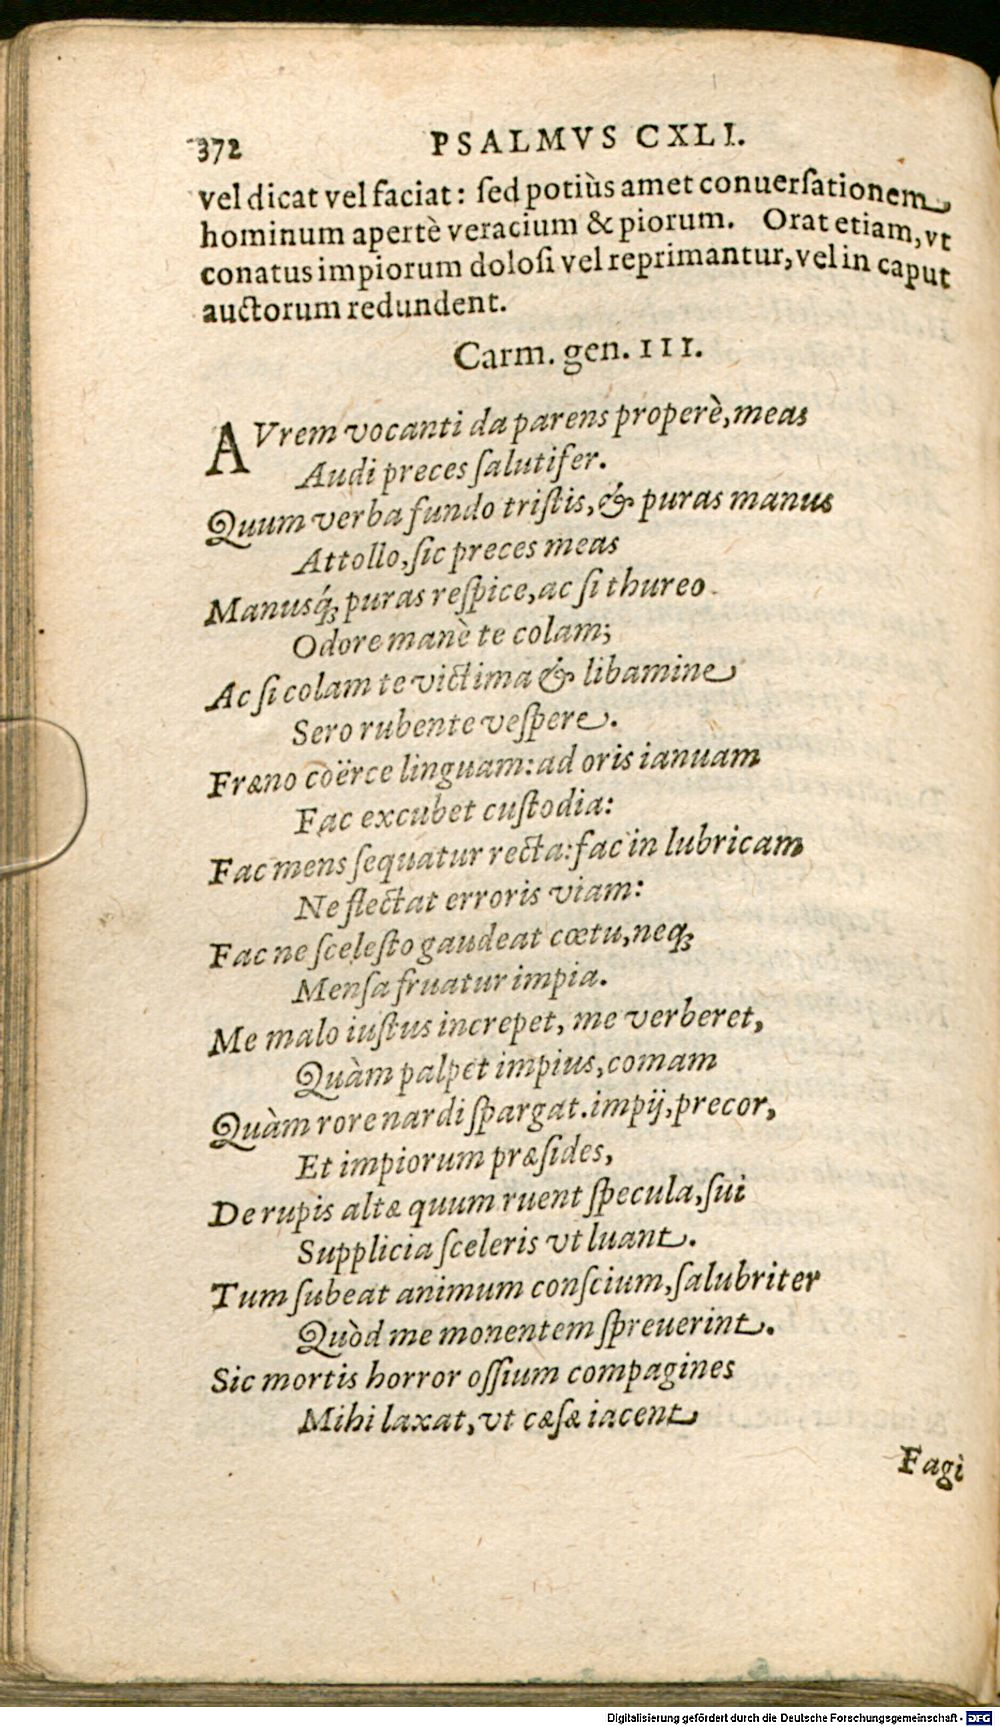 372 PSALMVS CXLI.
vel dicat vel faciat: ſed potiùs amet conuerſationem
hominum apertè veracium & piorum. Orat etiam, vt
conatus impiorum doloſi vel reprimantur, vel in caput
auctorum redundent.
Carm. gen. III.
AVrem vocanti da parens properè, meas
Audi preces ſalutifer.
Quum verba fundo triſtis, & puras manus
Attollo, ſic preces meas
Manusq́ꝫ puras reſpice, ac ſi thureo
Odore manè te colam;
Ac ſi colam te victima & libamine
Sero rubente veſpere.
Fræno coërce linguam: ad oris ianuam
Fac excubet cuſtodia:
Fac mens ſequatur recta: fac in lubricam
Ne flectat erroris viam:
Fac ne ſceleſto gaudeat cœtu, neqꝫ
Menſa fruatur impia.
Me malo iuſtus increpet, me verberet,
Quàm palpet impius, comam
Quàm rore nardi ſpargat. impij, precor,
Et impiorum præſides,
De rupis altæ quum ruent ſpecula, ſui
Supplicia ſceleris vt luant.
Tum ſubeat animum conſcium, ſalubriter
Quòd me monentem ſpreuerint.
Sic mortis horror oſſium compagines
Mihi laxat, vt cæſæ iacent
Fagi
Digitalisierung gefördert durch die Deutsche Forschungsgemeinschaft - DFG